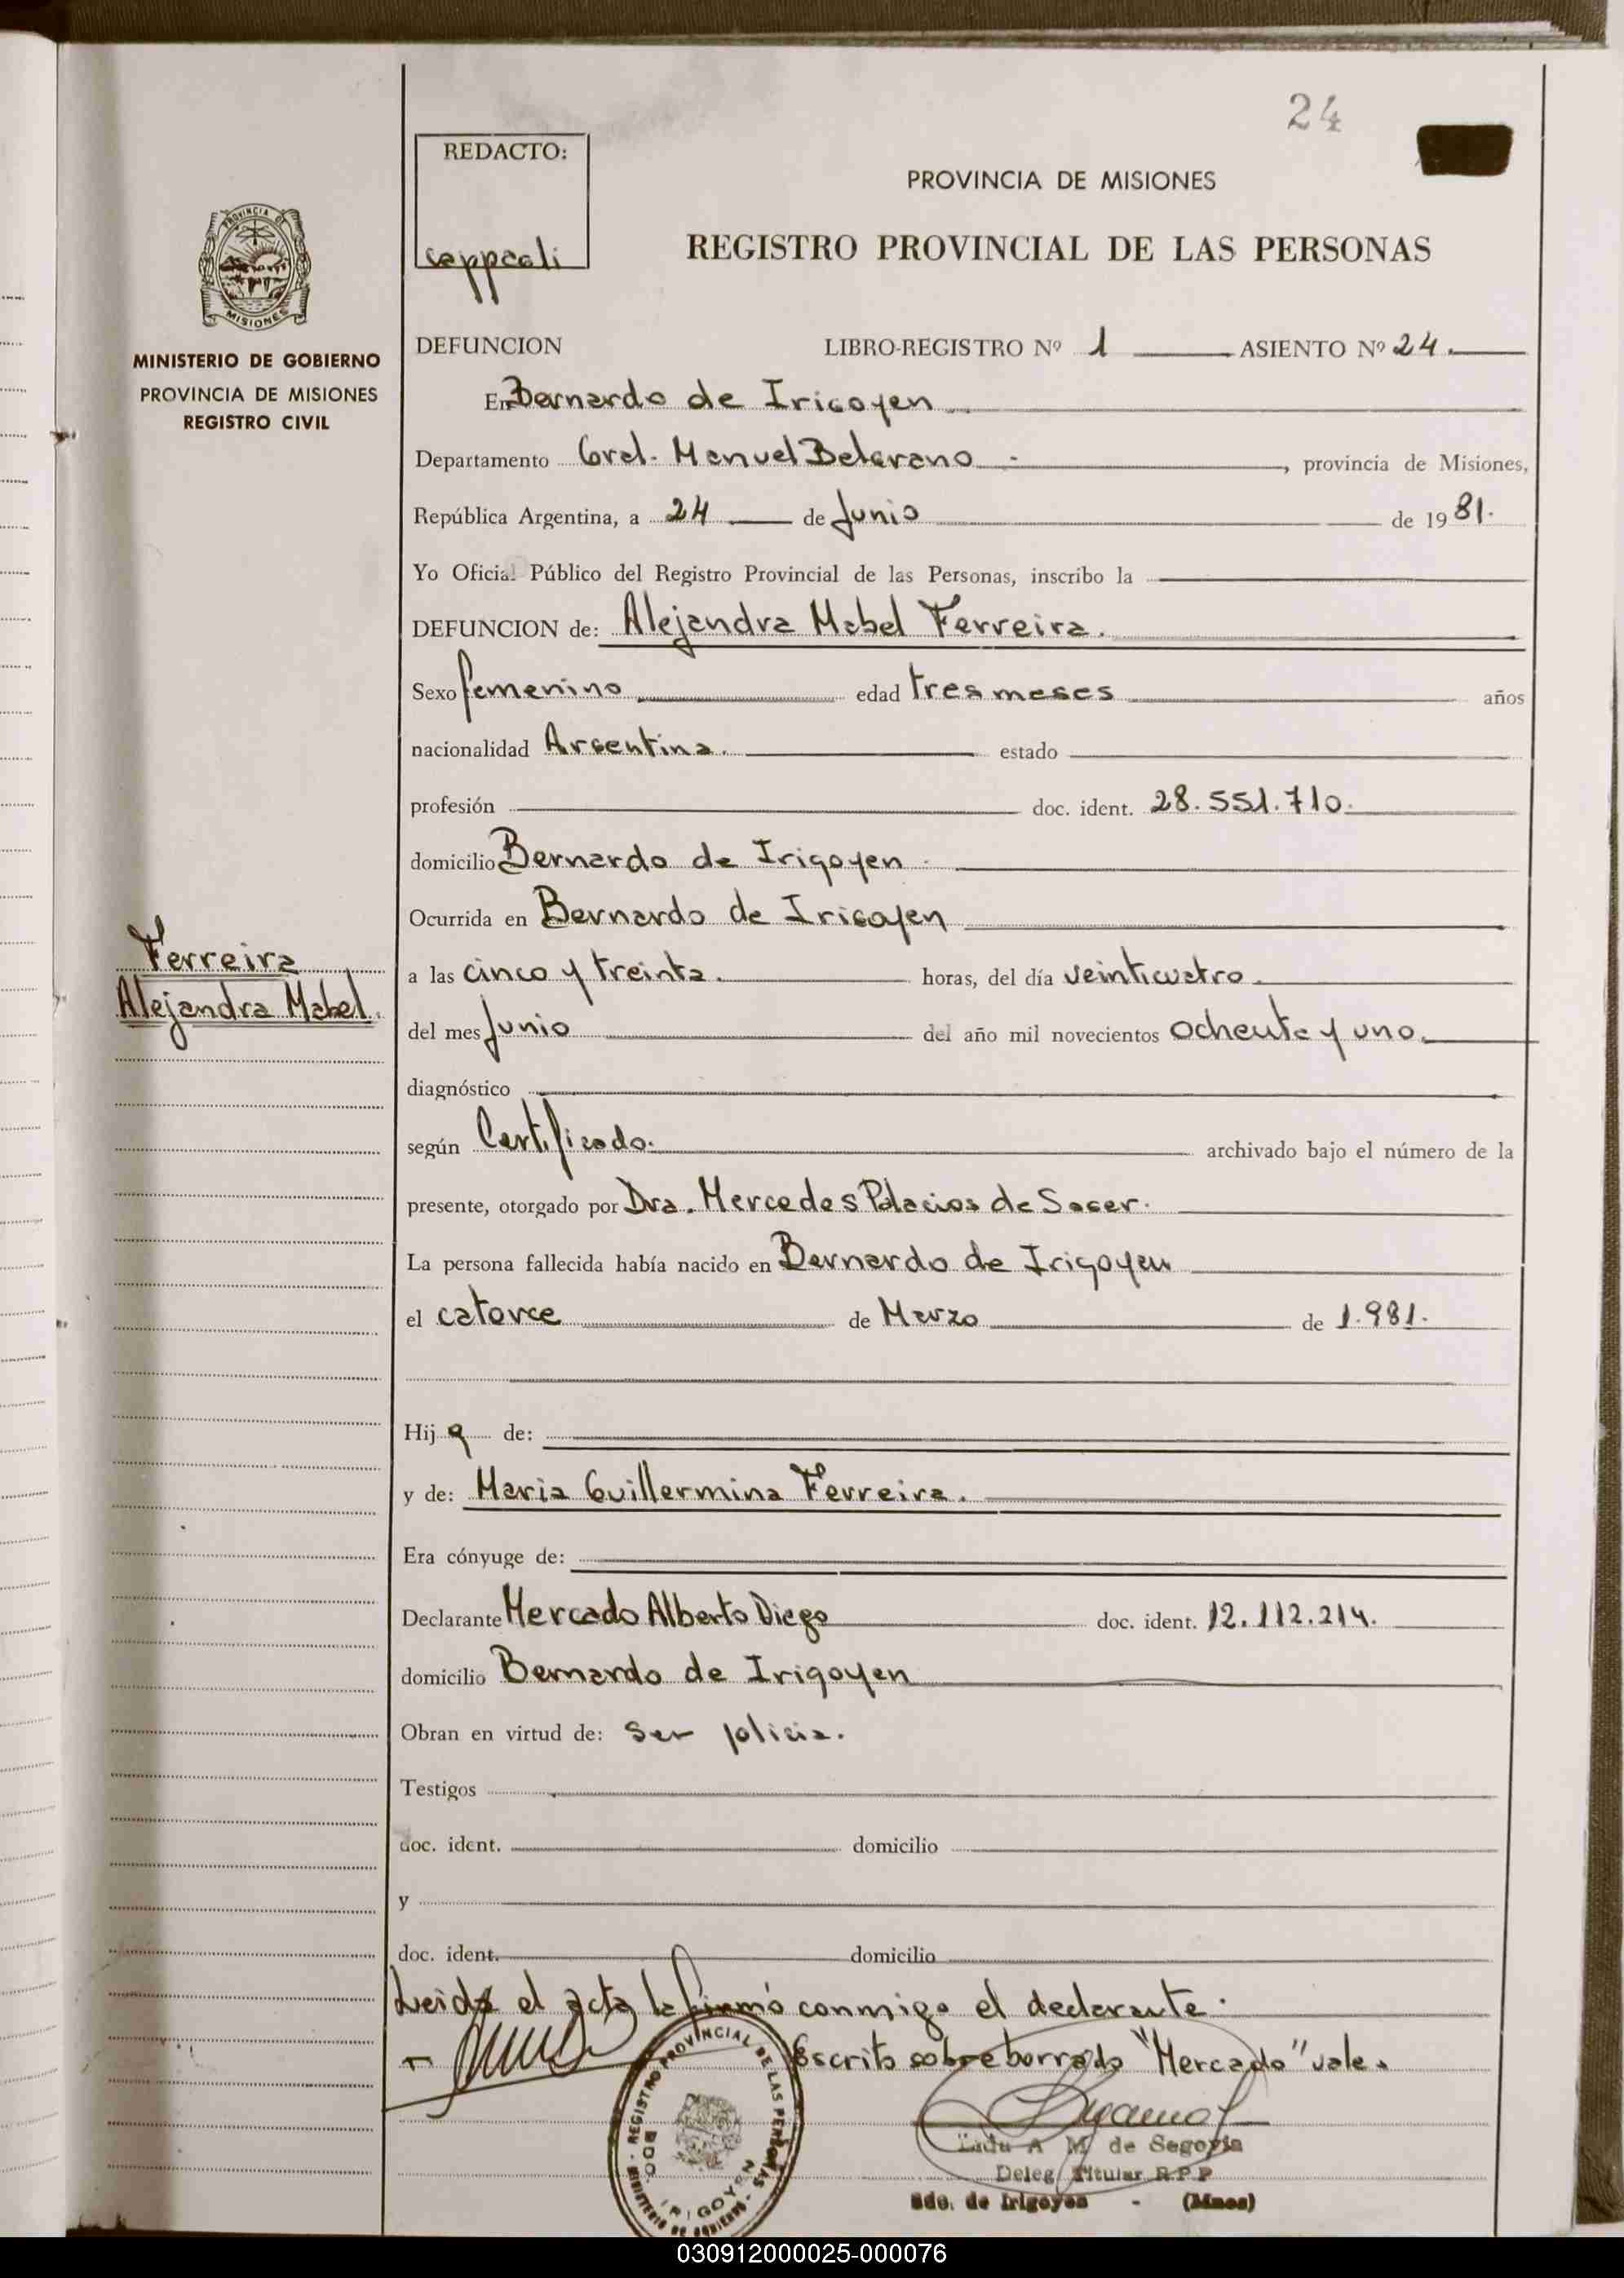 24
REDACTO:
PROVINCIA DE MISIONES
REGISTRO PROVINCIAL DE LAS PERSONAS
PROVINCIA DE
MISIONES
MINISTERIO DE GOBIERNO
PROVINCIA DE MISIONES
REGISTRO CIVIL
DEFUNCION LIBRO-REGISTRO Nº 1 ASIENTO Nº 24.
En Bernardo de Irigoyen
Departamento Gral. Manuel Belgrano - , provincia de Misiones,
República Argentina, a 24 de Junio de 1981.
Yo Oficial Público del Registro Provincial de las Personas, inscribo la
DEFUNCION de: Alejandra Mabel Ferreira.
Sexo femenino edad tres meses años
nacionalidad Argentina. estado
profesión doc. ident. 28.551.710.
domicilio Bernardo de Irigoyen.
Ocurrida en Bernardo de Irigoyen
Ferreira
Alejandra Mabel.
a las cinco y treinta. horas, del día veinticuatro.
del mes Junio del año mil novecientos ochenta y uno.
diagnóstico
según Certificado. archivado bajo el número de la
presente, otorgado por Dra. Mercedes Palacios de Soger.
La persona fallecida había nacido en Bernardo de Irigoyen
el catorce de Marzo de 1.981.
Hija de:
y de: Maria Guillermina Ferreira.
Era cónyuge de:
Declarante Mercado Alberto Diego doc. ident. 12.112.214.
domicilio Bernardo de Irigoyen
Obran en virtud de: Ser policia.
Testigos
doc. ident. domicilio
y
doc. ident. domicilio
Leida el acta la firmó conmigo el declarante.
Escrito sobre borrado "Mercado" vale.
REGISTRO PROVINCIAL DE LAS PERSONAS - MINISTERIO DE GOBIERNO -
BDO. IRIGOYEN
A M de Segovia
Deleg. Titular R.P.P
Bdo. de Irigoyen - (Mnes)
030912000025-000076